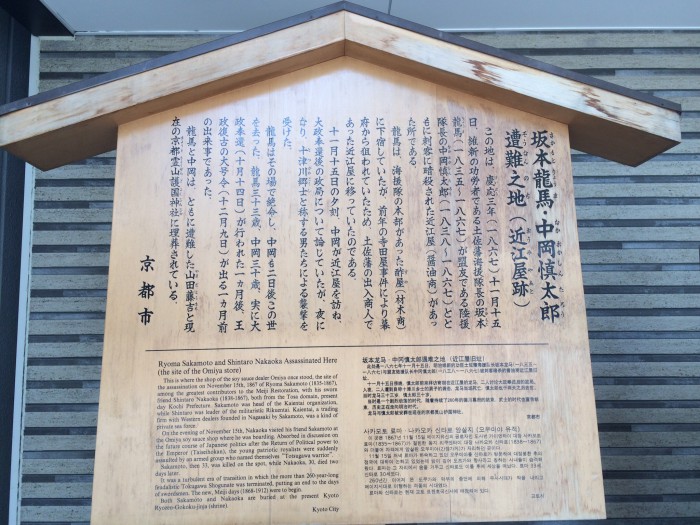 坂本龍馬・中岡慎太郎
さかもとりょうま なかおかしんたろう
遭難之地（近江屋跡）
そうなんのち おうみやあと
この地は、慶応三年（一八六七）十一月十五
日、維新の功労者である土佐藩海援隊長の坂本
龍馬（一八三五～一八六七）が盟友である陸援
隊長の中岡慎太郎（一八三八～一八六七）とと
もに刺客に暗殺された近江屋（醤油商）があっ
た所である。
龍馬は、海援隊の本部があった酢屋（材木商）
に下宿していたが、前年の寺田屋事件により幕
府から狙われていたため、土佐藩の出入商人で
あった近江屋に移っていたのである。
十一月十五日の夕刻、中岡が近江屋を訪ね、
大政奉還後の政局について論じていたが、夜に
なり、十津川郷士と称する男たちによる襲撃を
受けた。
龍馬はその場で絶命し、中岡も二日後この世
を去った。龍馬三十三歳、中岡三十歳。実に大
政奉還（十月十四日）が行われた一カ月後、王
政復古の大号令（十二月九日）が出る一カ月前
の出来事であった。
龍馬と中岡は、ともに遭難した山田藤吉と現
在の京都霊山護国神社に埋葬されている。
京都市
Ryoma Sakamoto and Shintaro Nakaoka Assassinated Here
(the site of the Omiya store)
This is where the shop of the soy sauce dealer Omiya once stood, the site of
the assassination on November 15th, 1867 of Ryoma Sakamoto (1835-1867),
among the greatest contributors to the Meiji Restoration, with his sworn
friend Shintaro Nakaoka (1838-1867), both from the Tosa domain, present
day Kochi Prefecture. Sakamoto was head of the Kaientai organization,
while Shintaro was leader of the militaristic Rikuentai. Kaientai, a trading
firm with Western dealers founded in Nagasaki by Sakamoto, was a kind of
private sea force.
On the evening of November 15th, Nakaoka visited his friend Sakamoto at
the Omiya soy sauce shop where he was boarding. Absorbed in discussion on
the future course of Japanese politics after the Return of Political power to
the Emperor (Taiseihokan), the young patriotic royalists were suddenly
assaulted by an armed group who supposed themselves "Totsugawa warrior".
Sakamoto, then 33, was killed on the spot, while Nakaoka, 30, died two
days later.
It was a turbulent era of transition in which the more than 260-year-long
feudalistic Tokugawa Shogunate was terminated, putting an end to the days
of swordsmen. The new, Meiji days (1868-1912) were to begin.
Both Sakamoto and Nakaoka are buried at the present Kyoto
Ryozen-Gokoku-jinja (shrine)
Kyoto City